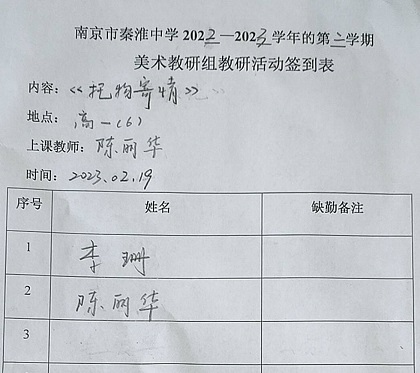 南京市秦淮中学 2022—2023 学年的第二学期
美术教研组教研活动签到表
内容：《托物寄情》
地点：高一(6)
上课教师：陈丽华
时间：2023.02.19
序号 姓名 缺勤备注
1 李珊
2 陈丽华
3